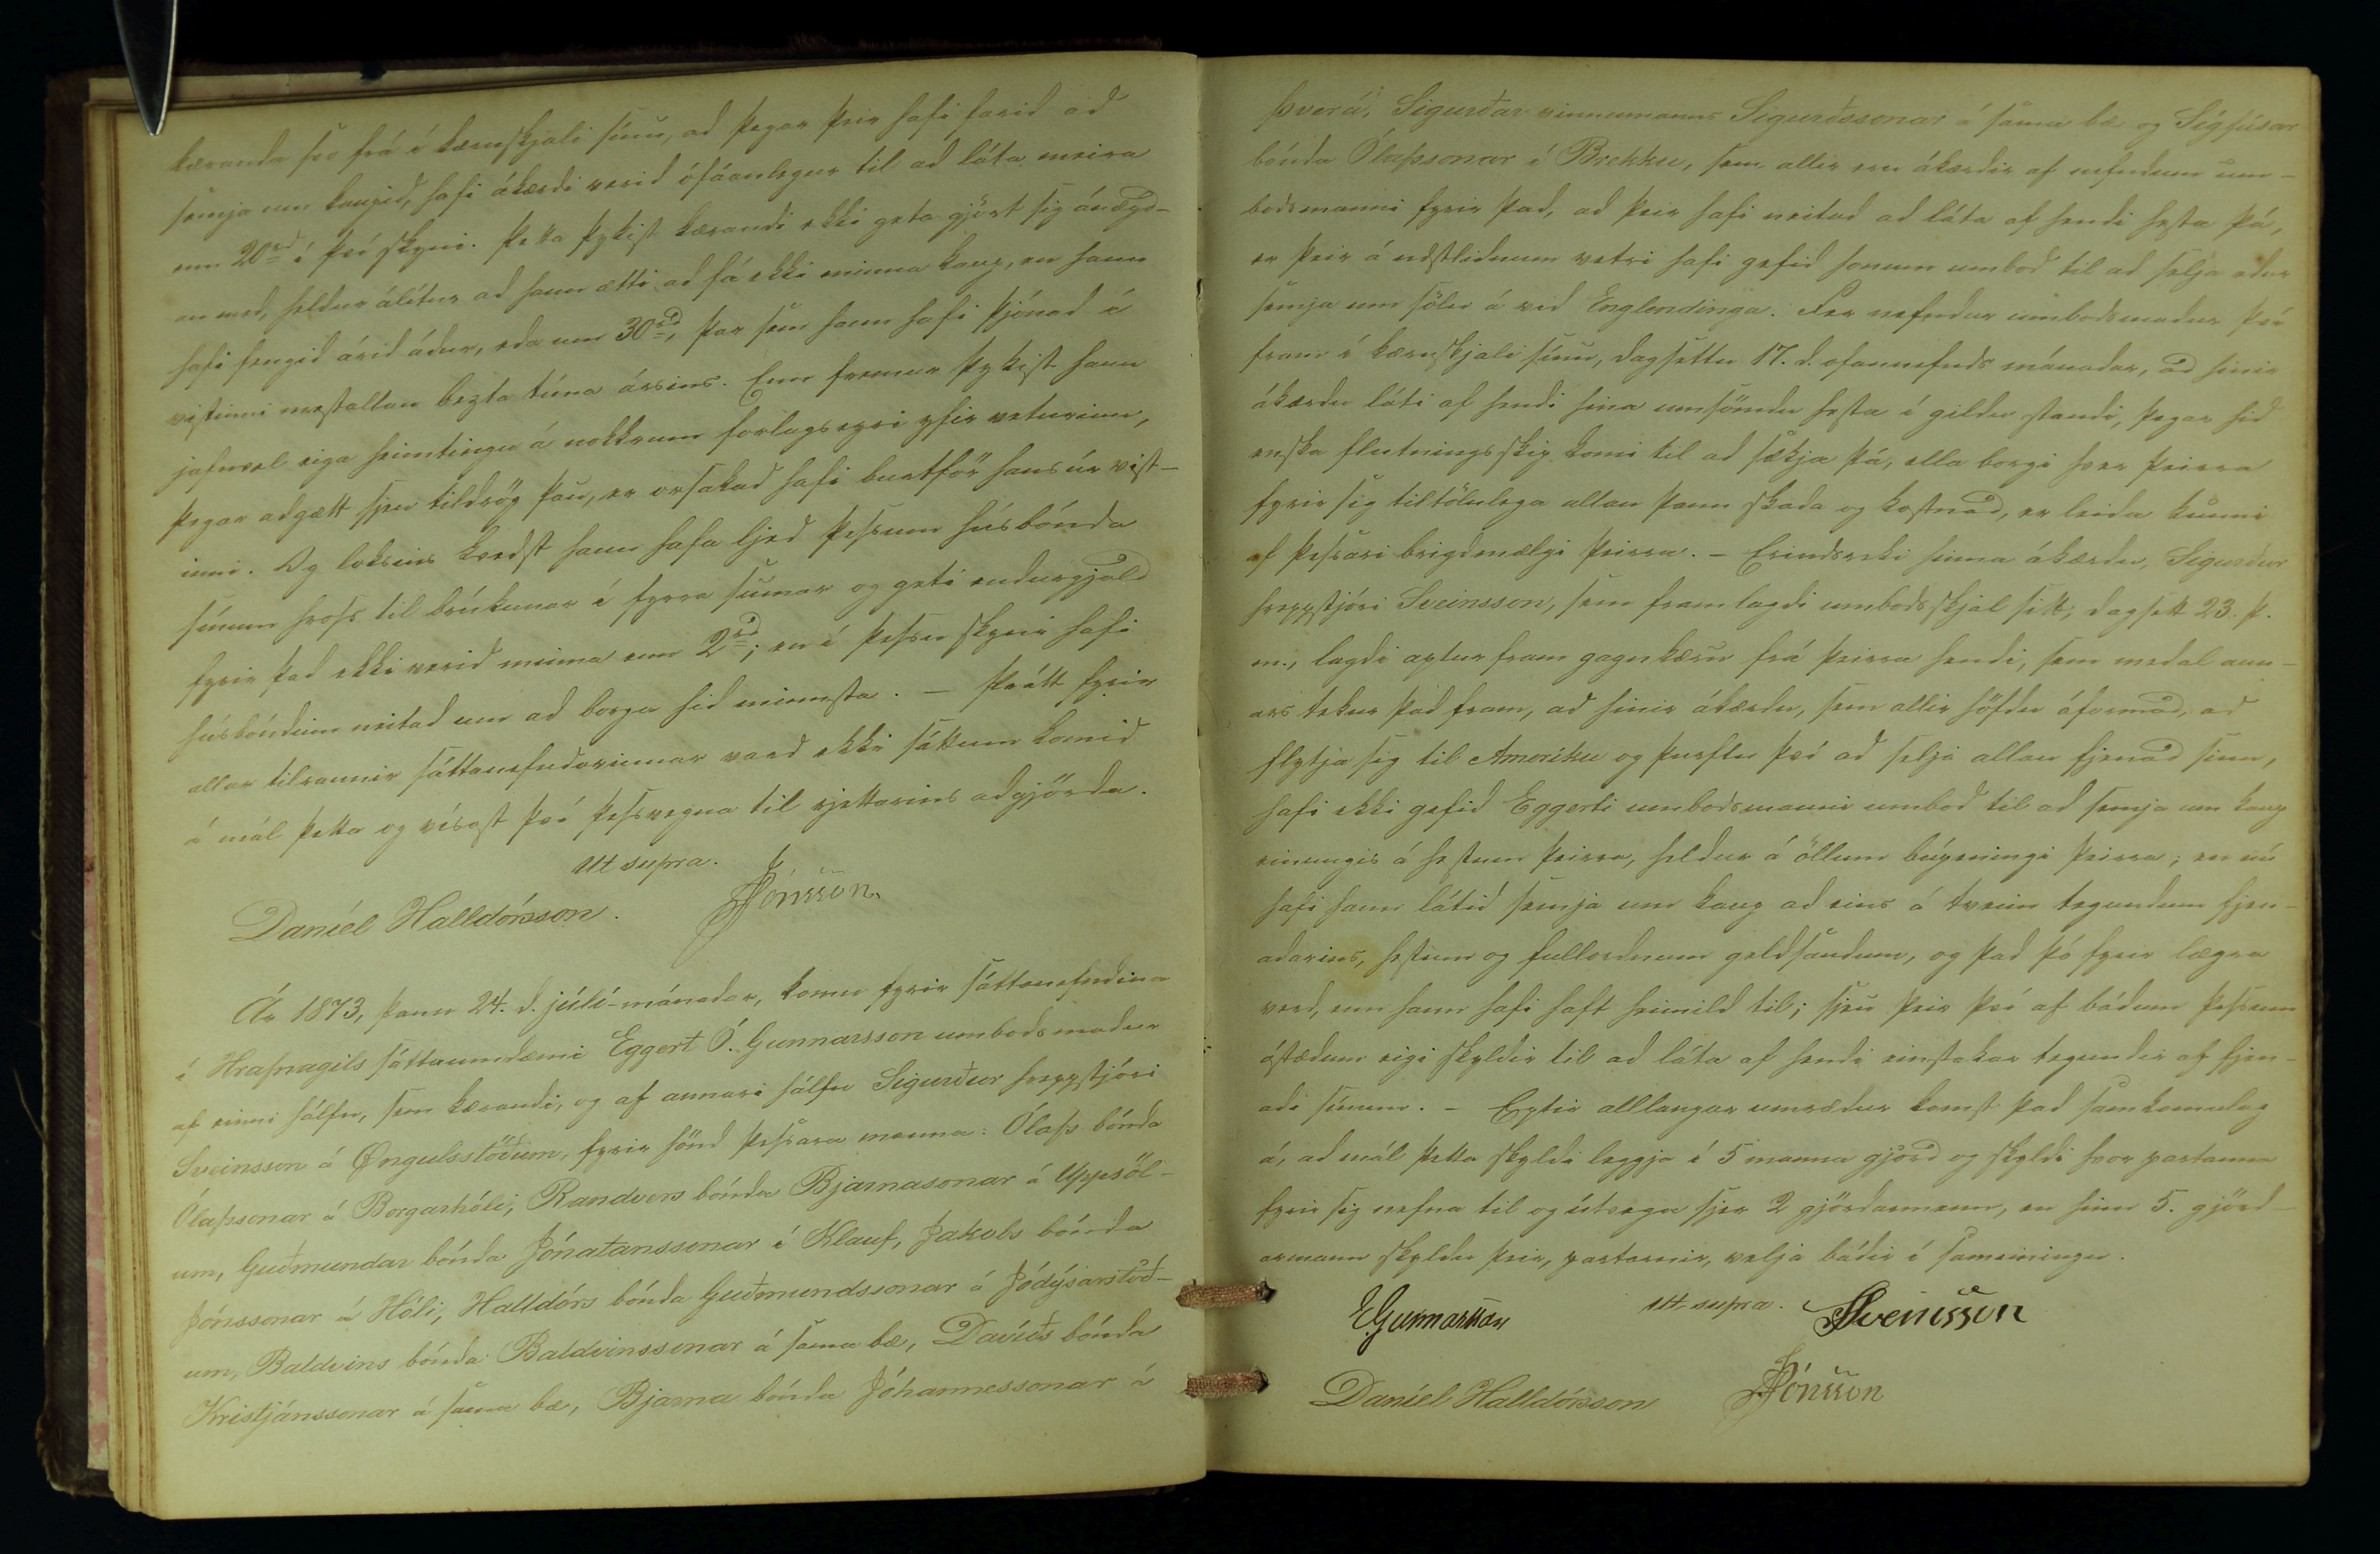 kæranda svo frá í kæruskjali sínu, ad þegar þeir hafi farid ad
semja um kaupid, hafi ákærdi verid ófáanlegur til ad láta meira
enn 20 rd í því skyni. Þetta þykist kærandi ekki geta gjört sig ánægd-
an med, heldur álítur ad hann ætti ad fá ekki minna kaup, en hann
hafi fengid árid ádur, eda um 30 rd, þar sem hann hafi þjónad í
vistinni mestallan bezta tíma ársins. Enn fremur þykist hann
jafnvel eiga heimtingu á nokkrum forlagseyri yfir veturinn,
þegar adgætt sjeu tildrög þau, er orsakad hafi burtför hans úr vist-
inni. Og loksins kvedst hann hafa ljed þessum húsbónda
sínum hross til brúkunar í fyrra sumar og geti endurgjald
fyrir það ekki verid minna enn 2 rd; en í þessu skyni hafi
húsbóndinn neitad um ad borga hid minnsta. – Þrátt fyrir
allar tilraunir sáttanefndarinnar vard ekki sáttum komid
á mál þetta og vísast því þessvegna til rjettarins adgjörda.
Ut supra.
Daníel Halldórsson. JJónsson.
Ár 1873, þann 24. d. júlí-mánadar, komu fyrir sáttanefndina
í Hrafnagils sáttaumdæmi Eggert Ó. Gunnarsson umbodsmadur
af einni hálfu, sem kærandi, og af annari hálfu Sigurður hreppstjóri
Sveinsson á Öngulsstöðum, fyrir hönd þessara manna: Ólafs bónda
Ólafssonar á Borgarhóli, Randvers bónda Bjarnasonar á Uppsöl-
um, Guðmundar bónda Jónatanssonar í Klauf, Jakobs bónda
Jónssonar á Hóli, Halldórs bónda Guðmundssonar á Jódýsarstöð-
um, Baldvins bónda Baldvinssonar á sama bæ, Davíðs bónda
Kristjánssonar á sama bæ, Bjarna bónda Jóhannessonar á
Þverá, Sigurðar vinnumanns Sigurðssonar á sama bæ og Sigfúsar
bónda Ólafssonar í Brekku, sem allir eru ákærdir af nefndum um-
bodsmanni fyrir þad, ad þeir hafi neitad ad láta af hendi hesta þá,
er þeir á næstlidnum vetri hafi gefid honum umbod til ad selja edur
semja um sölu á vid Englendinga. Fer nefndur umbodsmadur því
fram í kæruskjali sínu, dagsettu 17. d. ofannefnds mánadar, ad hinir
ákærdu láti af hendi hina umsömdu hesta í gildu standi, þegar hid
enska flutningsskip komi til ad sækja þá, ella borgi hver þeirra
fyrir sig tiltölulega allan þann skada og kostnad, er leida kunni
af þessari brigdmælgi þeirra. – Erindsreki hinna ákærdu, Sigurður
hreppstjóri Sveinsson, sem framlagdi umbodsskjal sitt, dagsett 23. þ.
m., lagdi aptur fram gagnkæru frá þeirra hendi, sem medal ann-
ars tekur þad fram, ad hinir ákærdu, sem allir höfdu áformad, ad
flytja sig til Ameríku og þurftu því ad selja allan fjenad sinn,
hafi ekki gefid Eggerti umbodsmanni umbod til ad semja um kaup
einungis á hestum þeirra, heldur á öllum búpeningi þeirra; en nú
hafi hann látid semja um kaup ad eins á tveim tegundum fjen-
adarins, hestum og fullordnum geldsaudum, og þad þó fyrir lægra
verd, enn hann hafi haft heimild til; sjeu þeir því af bádum þessum
ástædum eigi skyldir til ad láta af hendi einstakar tegundir af fjen-
adi sínum. – Eptir alllangar umrædur komst þad samkomulag
á, ad mál þetta skyldi leggja í 5 manna gjörd og skyldi hvor partanna
fyrir sig nefna til og útvega sjer 2 gjördarmenn, en hinn 5. gjörd-
armann skyldu þeir, partarnir, velja bádir í sameiningu.
Ut supra.
EGunnarsson SSveinsson
Daníel Halldórsson JJónsson